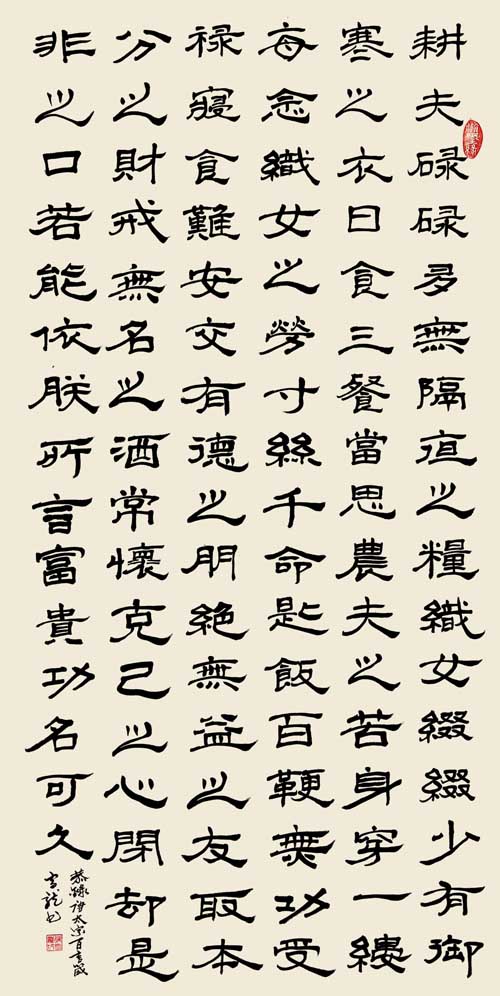 耕夫碌碌多無隔夜之糧織女綴綴少有御
寒之衣日食三餐當思農夫之苦身穿一縷
每念織女之勞寸絲千命匙飯百鞭無功受
祿寢食難安交有德之朋絕無益之友取本
分之財戒無名之酒常懷克己之心閉却是
非之口若能依朕所言富貴功名可久
恭錄唐太宗百言箴